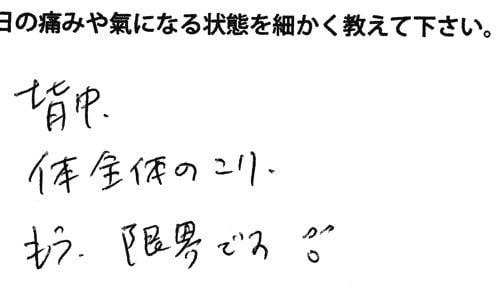 日の痛みや氣になる状態を細かく教えて下さい。
背中.
体全体のこり.
もう. 限界です